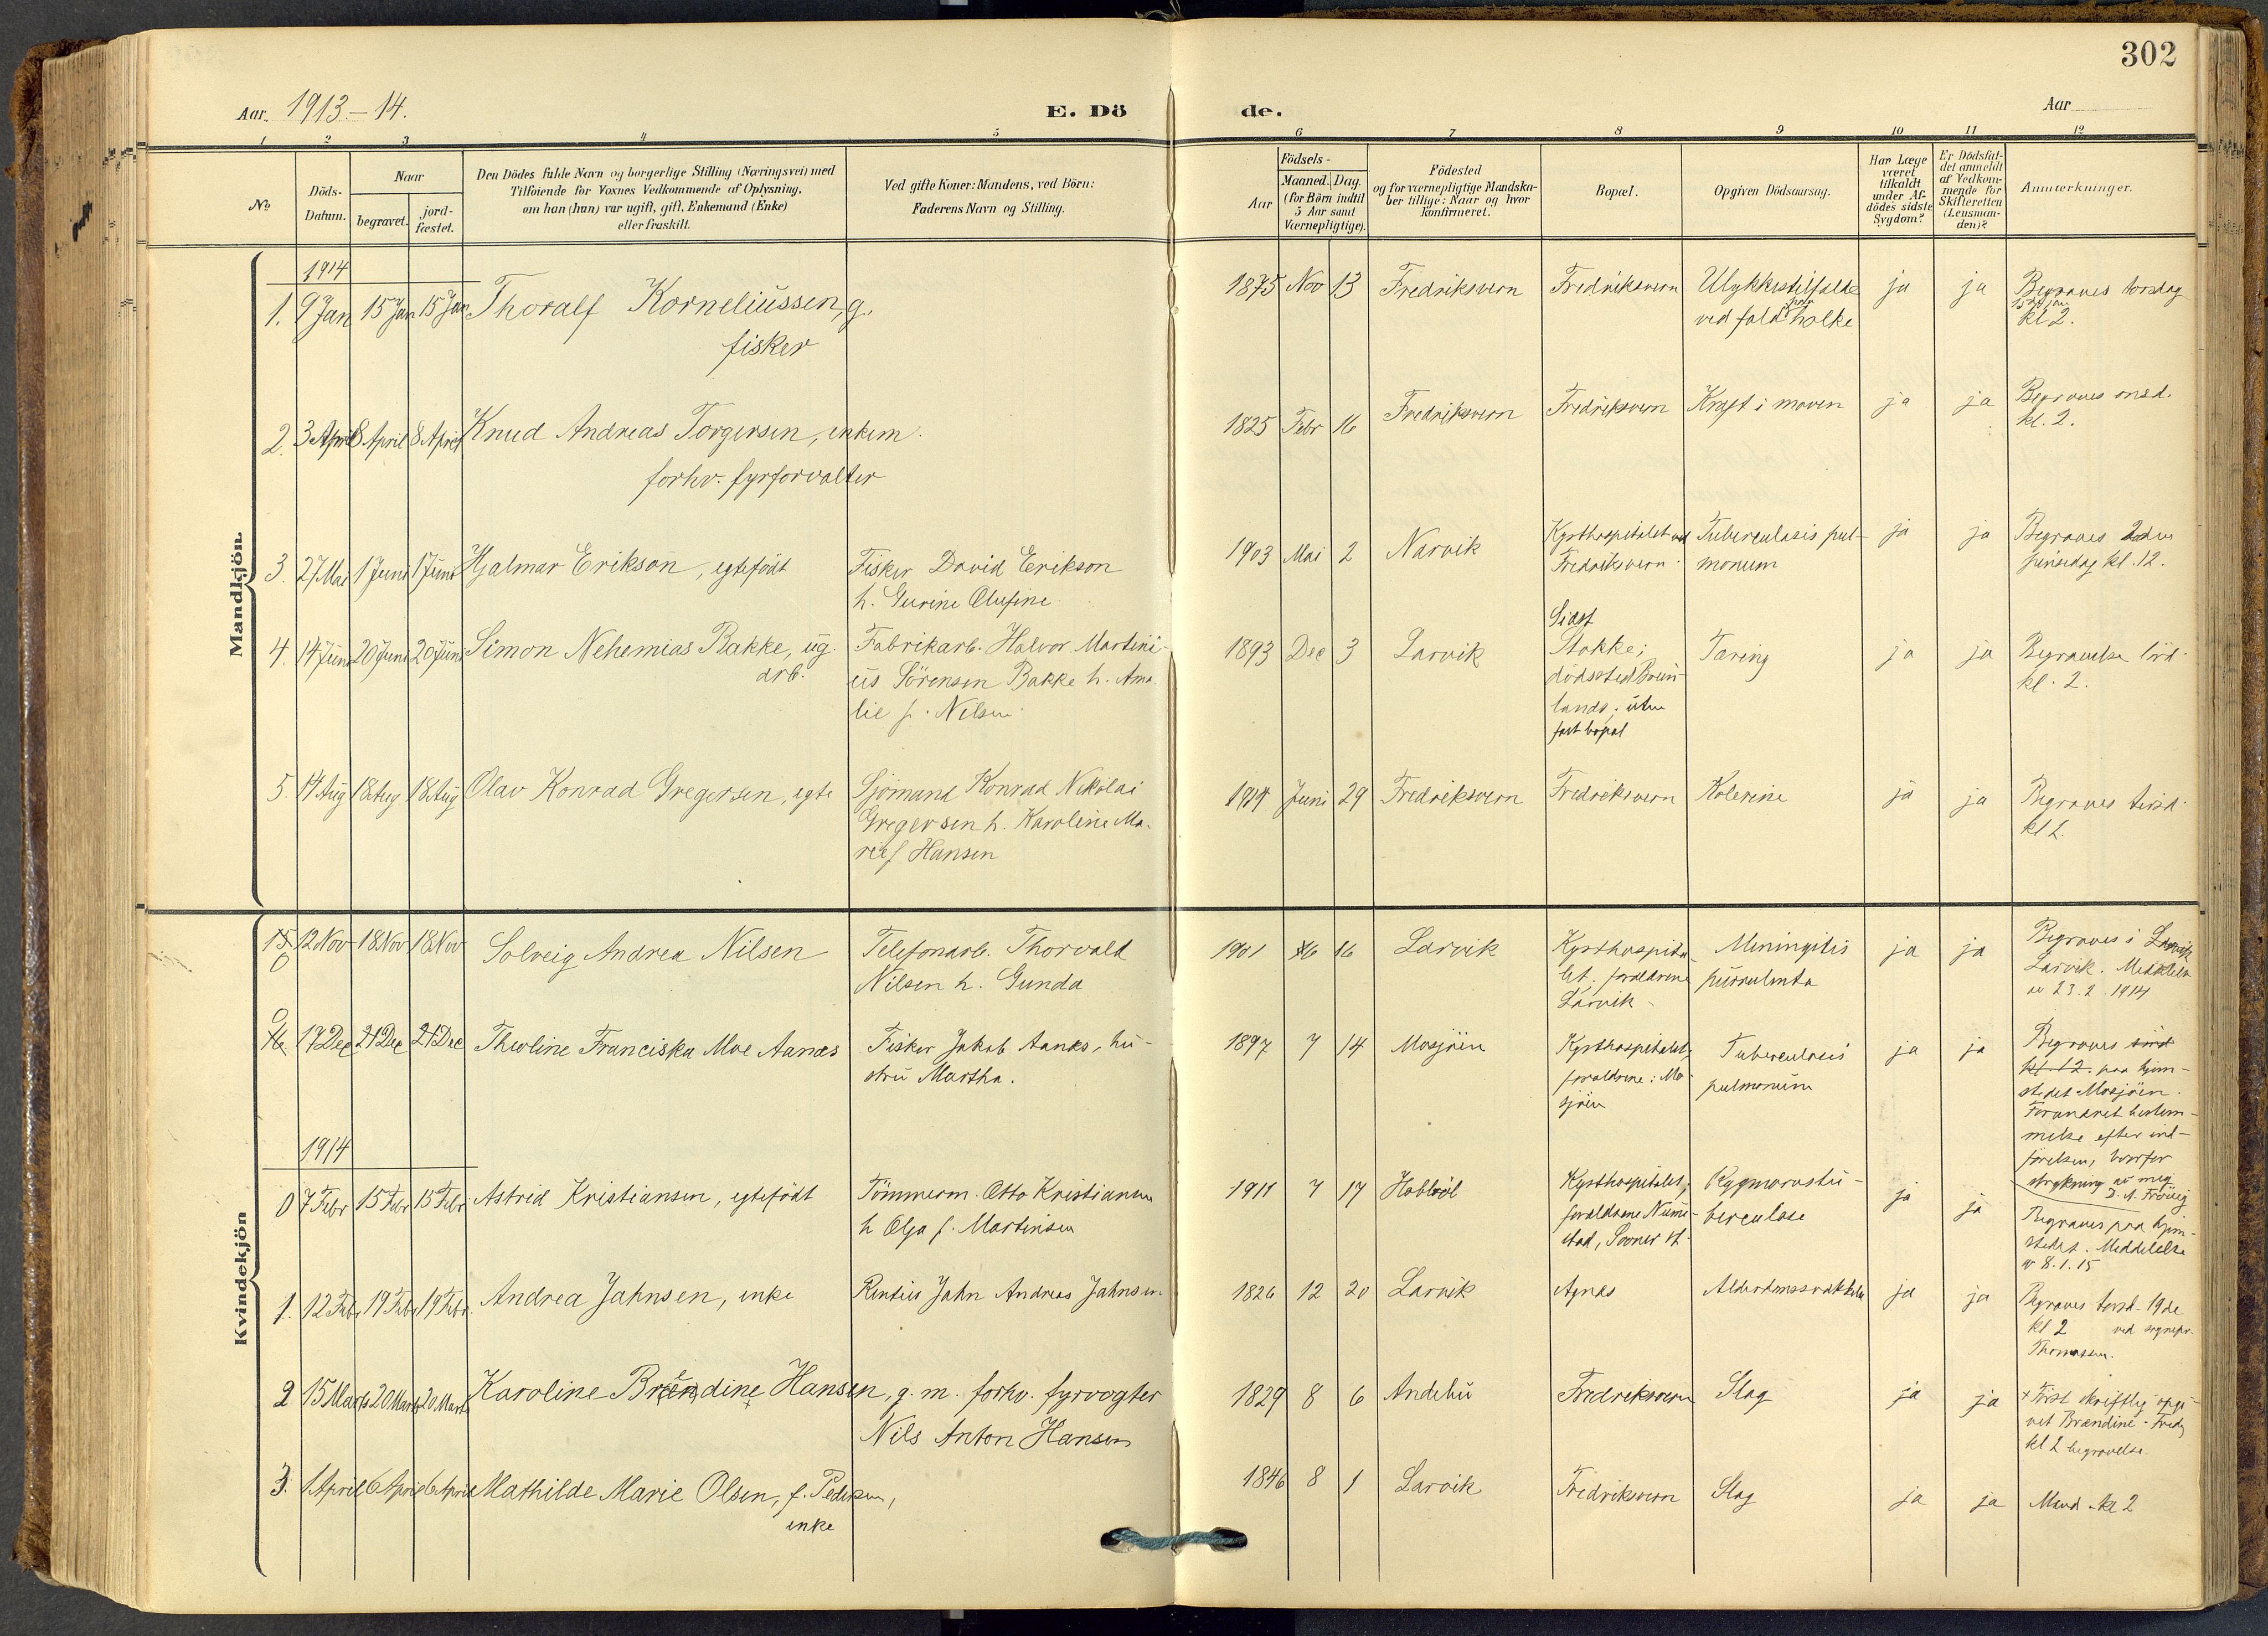 302
Aar. 1913-14.
E. Dö
de.
Aar
1 2 3 4 5 6 7 8 9 10 11 12
No
Döds-
Datum.
Naar
begravet.
jord-
fæstet.
Den Dödes fulde Navn og borgerlige Stilling (Næringsvei) med
Tilföiende for Voxnes Vedkommende af Oplysning,
om han (hun) var ugift, gift, Enkemand (Enke)
eller fraskilt.
Ved gifte Koner: Mandens, ved Börn:
Faderens Navn og Stilling.
Födsels-
Aar
Maaned. Dag.
(for Börn indtil
5 Aar samt
Værnepligtige).
Födested
og for værnepligtige Mandska-
ber tillige: Naar og hvor
konfirmeret.
Bopæl.
Opgiven Dödsaarsag.
Har Læge
været
tilkaldt
under Af-
dödes sidste
Sygdom?
Er Dödsfal-
det anmeldt
af Vedkom-
mende for
Skifteretten
(Lensman-
den)?
Anmærkninger.
Mandkjön.
1914
1. 9 Jan 15 Jan 15 Jan Thoralf Korneliussen, g.
fisker
1875 Nov 13 Fredriksvern Fredriksvern Ulykkestilfælde
ved fald holke
ja ja Begraves torsdag
kl 2.
2. 3 April 8 April 8 April Knud Andreas Torgersen, enkem.
forhv. fyrforvalter
1825 Febr 16 Fredriksvern Fredriksvern Kræft i maven ja ja Begraves onsd.
kl. 2.
3. 27 Mai 1 Juni 1 Juni Hjalmar Erikson, egtefödt
Fisker David Erikson
h. Gurine Olufine
1903 Mai 2 Narvik Kysthospitalet ved
Fredriksvern
Tuberculosis pul-
monum
ja ja Begraves 2den
pinsedag kl. 12.
4. 14 Juni 20 Juni 20 Juni Simon Nehemias Bakke, ug.
arb.
Fabrikarb. Halvor Martini-
us Sörensen Bakke h. Ama-
lie f. Nilsen
1893 Dec 3 Larvik Sidst
Stokke;
dödssted Brun-
lands; uten
fast bopæl
Tæring ja ja Begravelse lörd.
kl. 2.
5. 14 Aug 18 Aug 18 Aug Olav Konrad Gregersen, egte
Sjömand Konrad Nikolai
Gregersen h. Karoline Ma-
rie f. Hansen
1914 Juni 29 Fredriksvern Fredriksvern Kolerine ja ja Begraves tirsd.
kl 2.
Kvindekjön
15 0 12 Nov 18 Nov 18 Nov Solveig Andrea Nilsen
Telefonarb. Thorvald
Nilsen h. Gunda
1901 16 Larvik Kysthospita-
let; forældrene
Larvik
Meningitis
purulenta
ja ja Begraves i Larvik
Larvik. Meddelelse
av 23.2.1914
0 16 17 Dec 21 Dec 21 Dec Theoline Franciska Moe Aanes
Fisker Jakob Aanes, hu-
stru Martha.
1897 7 14 Mosjöen Kysthospitalet;
forældrene: Mo-
sjöen
Tuberculosis
pulmonum
ja ja Begraves sönd
kl. 12. paa hjem-
stedet Mosjöen.
Forandret bestem-
melse efter ind-
förelsen, hvorfor
strykning av mig
1914
0 7 Febr 15 Febr 15 Febr Astrid Kristiansen, egtefödt
Tömmerm. Otto Kristiansen
h Olga f. Martinsen
1911 7 17 Hobböl Kysthospitalet;
forældrene
stad, Sooner st.
Rygmarvstu-
berculose
ja ja Begraves paa hjem-
stedet. Meddelelse
av 8.1.15
1. 12 Febr 19 Febr 19 Febr. Andrea Jahnsen, enke
Rentier Jahn Andreas Jahnsen
1826 12 20 Larvik Agnes Alderdomssvækkelse ja ja Begraves torsd. 19de
kl 2 ved sognepr.
Thomassen.
2 15 Marts 20 Marts 20 Marts Karoline Brendine Hansen, g. m. forhv. fyrvogter
Nils Anton Hansen
1829 8 6 Andebu Fredriksvern Slag ja ja × Först skriftlig opgi-
vet Brændine. Fred.
kl 2 begravelse.
3. 1 April 6 April 6 April Mathilde Marie Olsen, f. Pedersen,
enke
1846 8 1 Larvik Fredriksvern Slag ja ja Mand. kl 2